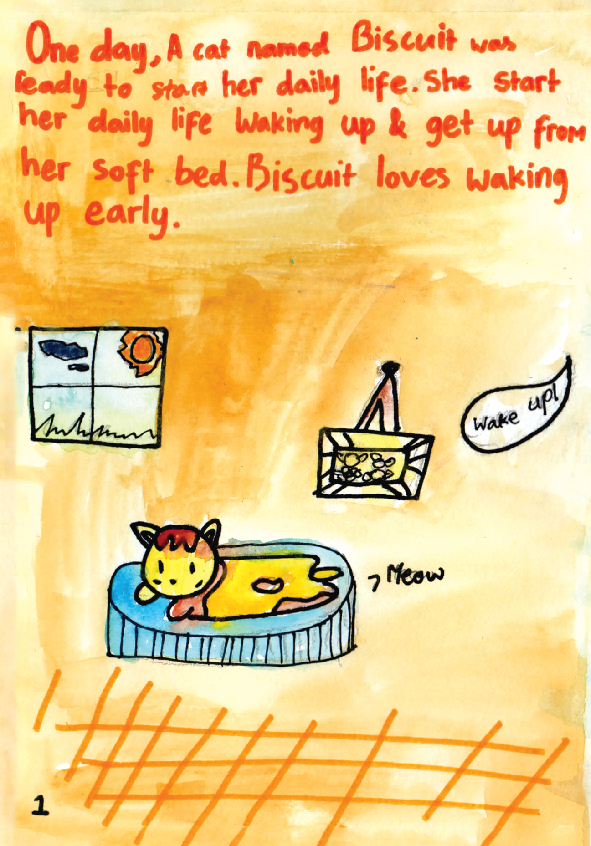 One day, A cat named Biscuit was
ready to start her daily life. She start
her daily life waking up & get up from
her soft bed. Biscuit loves waking
up early.
Wake up!
Meow
1